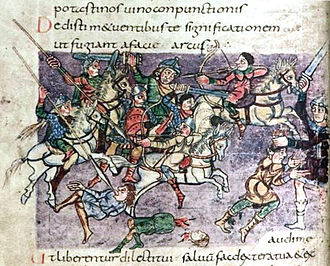 potastinos uino conpunctionis
Dedistimetuentibus te significationem
ut fugiant afacie arcus
audime
Ut liberentur dilectitui saluum fac dextera tua & ex